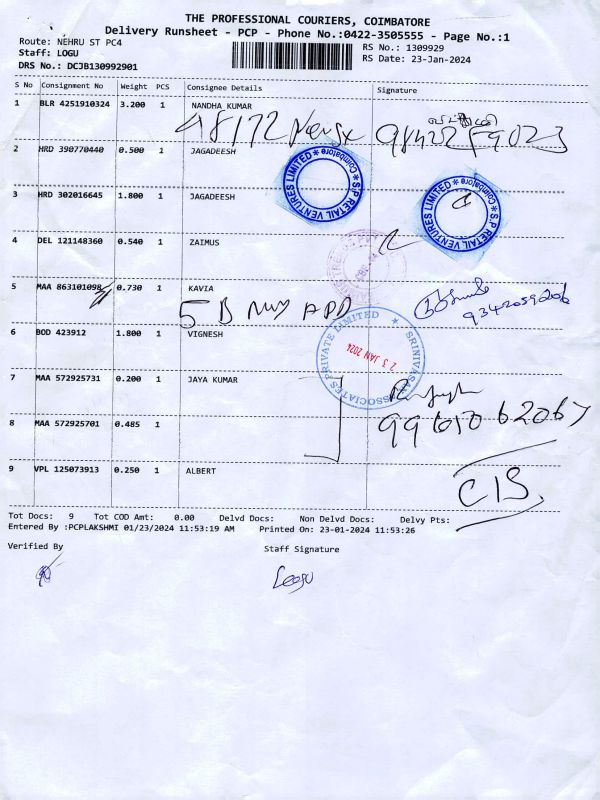 THE PROFESSIONAL COURIERS, COIMBATORE
Delivery Runsheet - PCP - Phone No.:0422-3505555 - Page No.:1
Route: NEHRU ST PC4
RS No.: 1309929
Staff: LOGU
RS Date: 23-Jan-2024
DRS No.: DCJB130992901
S No Consignment No Weight PCS Consignee Details Signature
1 BLR 4251910324 3.200 1 NANDHA KUMAR
2 HRD 390770440 0.500 1 JAGADEESH
S.P RETAIL VENTURES LIMITED * Coimbatore *
3 HRD 302016645 1.800 1 JAGADEESH
S.P RETAIL VENTURES LIMITED * Coimbatore *
4 DEL 121148360 0.540 1 ZAIMUS
5 MAA 863101098 0.730 1 KAVIA
5 B
9342059206
6 BOD 423912 1.800 1 VIGNESH
SRINIVASA ASSOCIATES PRIVATE LIMITED *
23 JAN 2024
7 MAA 572925731 0.200 1 JAYA KUMAR
8 MAA 572925701 0.485 1
9 VPL 125073913 0.250 1 ALBERT
C/S.
Tot Docs: 9 Tot COD Amt: 0.00 Delvd Docs: Non Delvd Docs: Delvy Pts:
Entered By :PCPLAKSHMI 01/23/2024 11:53:19 AM Printed On: 23-01-2024 11:53:26
Verified By
Staff Signature
Logu